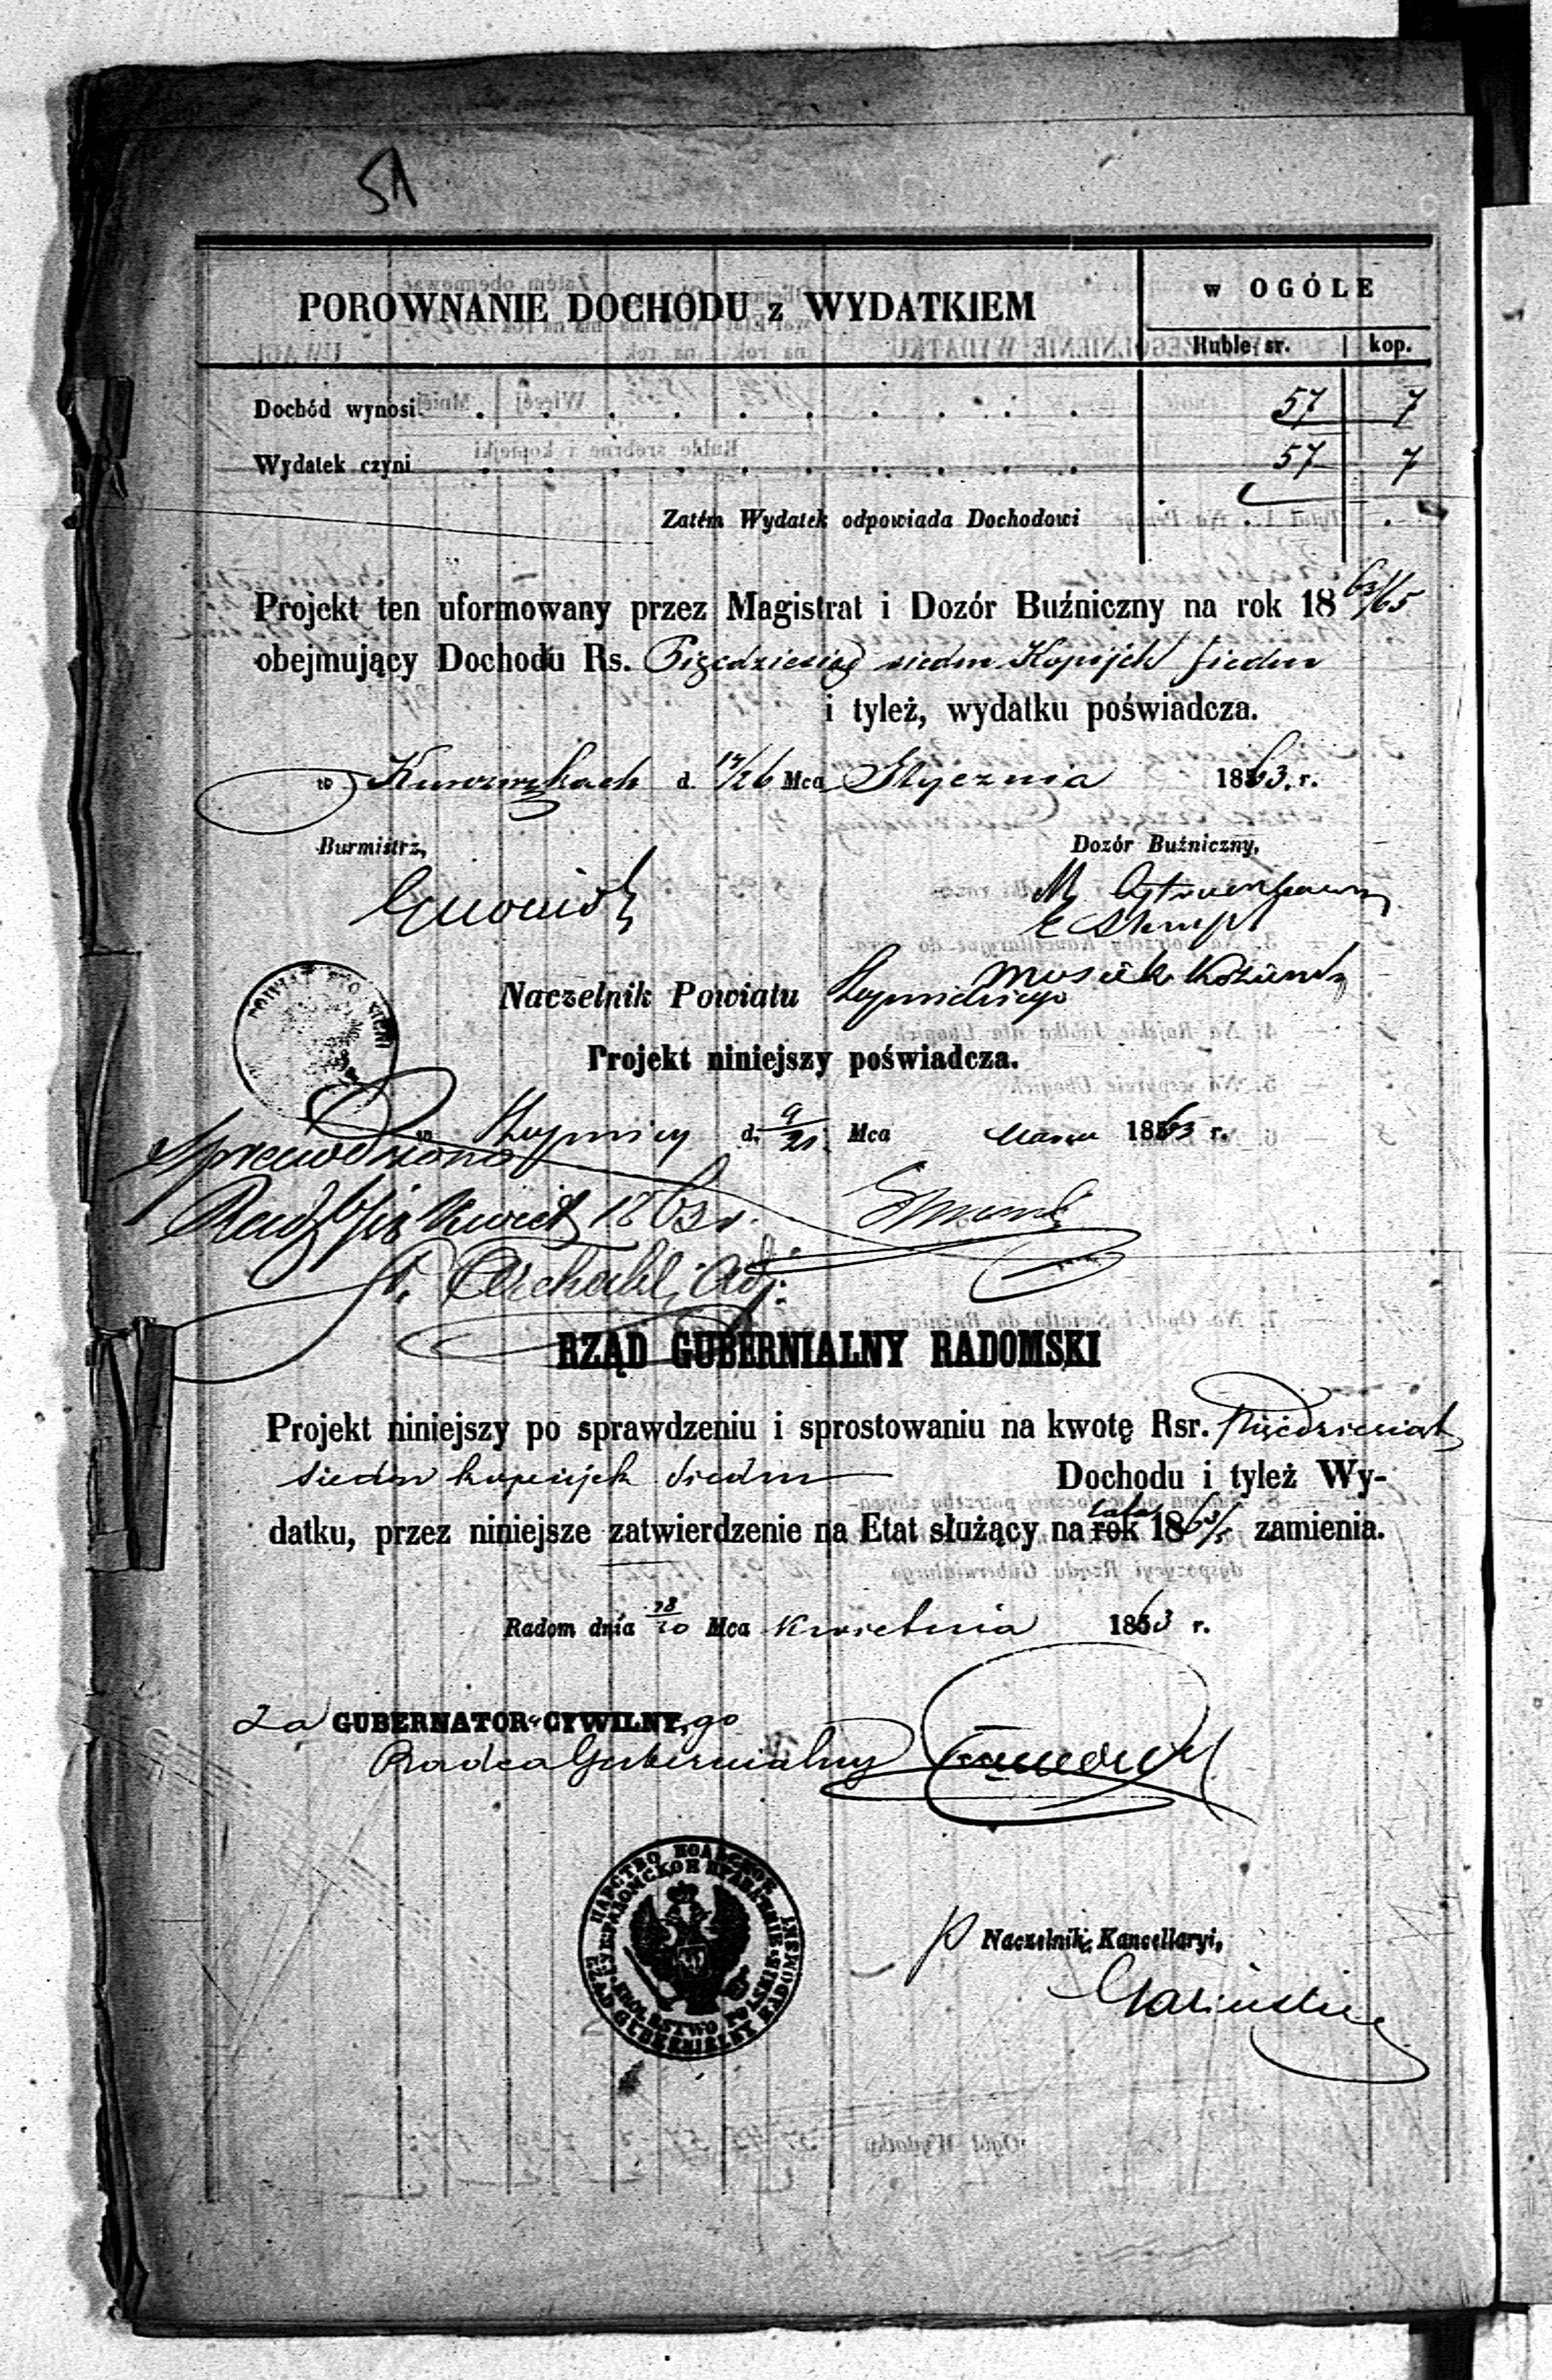 51
POROWNANIE DOCHODU z WYDATKIEM
w OGÓLE
Ruble sr. kop.
Dochód wynosi 57 7
Wydatek czyni 57 7
Zatém Wydatek odpowiada Dochodowi
Projekt ten uformowany przez Magistrat i Dozór Buźniczny na rok 1863/65
obejmujący Dochodu Rs. Pięćdziesiąt siedm Kopijek siedm
i tyleż, wydatku poświadcza.
w Kurozwękach d. 14/26 Mca Stycznia 1863 r.
Burmistrz, Dozór Buźniczny,
Naczelnik Powiatu Stopnickiego
Projekt niniejszy poświadcza.
w Stopnicy d. 9/21 Mca Marca 1863 r.
Sprawdzono
1863 r.
Adj.
RZĄD GUBERNIALNY RADOMSKI
Projekt niniejszy po sprawdzeniu i sprostowaniu na kwotę Rsr. Pięćdziesiąt
siedm kopiejek siedm Dochodu i tyleż Wy-
datku, przez niniejsze zatwierdzenie na Etat służący na rok lata 1863/5 zamienia.
Radom dnia 18/30 Mca Kwietnia 1863 r.
za GUBERNATOR CYWILNY, go
Radca Gubernialny
p Naczelnik Kancellaryi,
ЦАРСТВО ПОЛЬСКОЕ
KRÓLESTWO POLSKIE
RZĄD GUBERNIALNY RADOMSKI